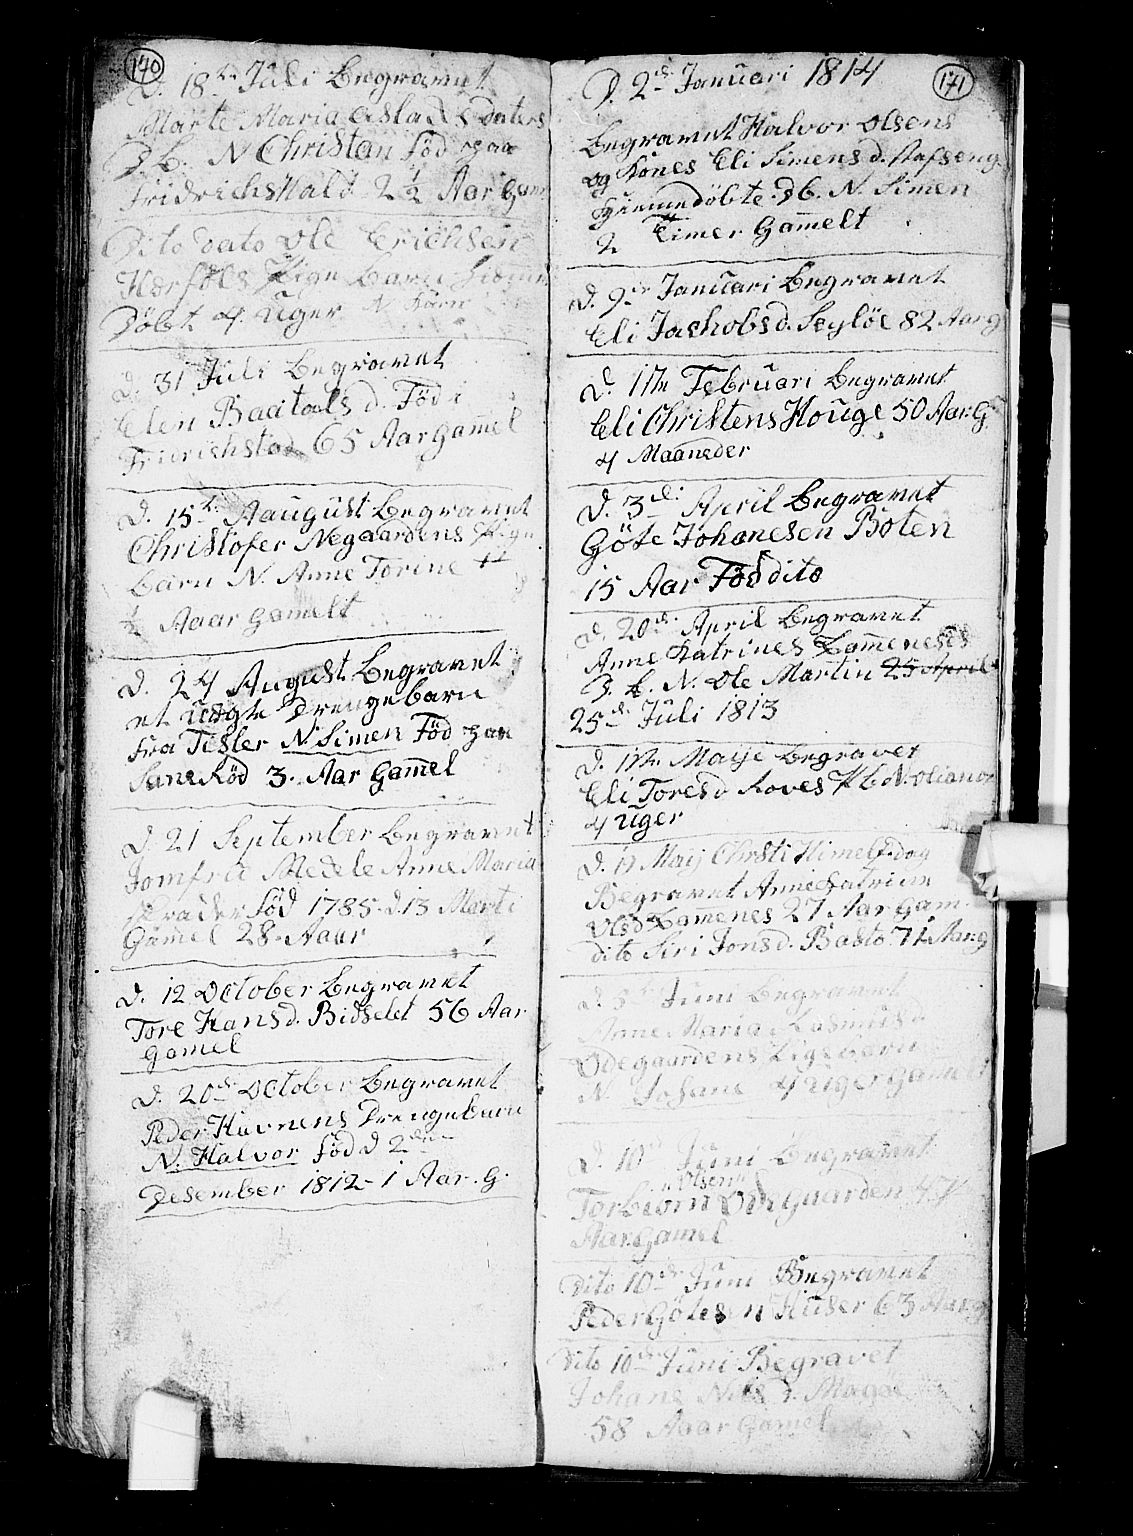 170
D. 18de Juli Begravet
Marte Maria Aslacks Daters
D. b. N Christan Föd paa
Fridrichshald 2½ Aar Gam
Dito Dato Ole Erichsen
Pige Barn
Döbt 4 Uger N. Karn
D. 31 Juli Begravet
Elen d. Föd i
65 Aar Gam̄el
D. 15de Aaugust Begravet
Christofer Negaardens Pige
barn N. Anne Torine
½ Aaar Gam̄elt
D. 24 August Begravet
et Uægte Drengebarn
fra Tesler N Simen Föd paa
SaneRöd 3. Aar Gam̄el
D. 21 September Begravet
Jomfru Medele Anne Maria
föd 1785. d. 13 Marti
Gam̄el 28. Aaar
D. 12 October Begravet
Tore Hans d. Bidselet 56 Aar
Gamel
D. 20de October Begravet
Peder Huvnens Drengebarn
N. Halvor föd d 2den
Desember 1812 - 1 Aar. G.
171
D. 2de Januari 1814
Begravet Halvor Olsens
og Kones Eli Simens d. Stafseng
Hiemmedöbte D b. N. Simen
2 Timer Gam̄elt
D. 9de Januari Begravet
Eli Jachobs d. Seylöe 82 Aar g
D. 11te Februari begravet
Eli Christens Houge 50 Aar G
4 Maaneder
D. 3de April Begravet
Göte Johanesen Boten
15 Aar Föd dito
D. 20de April Begravet
Anne Katrines Lam̄enesés
D. b. N. Ole Martin 25 April
25de Juli 1813
D. 11te Maije begravet
Eli Tores d Roves P b N. Oliano
4 Uger
D. 19 Maij Christi Himelf. dag
Begravet Anne Katrine
Ols d Lamenes 27 Aar Gam.
dito Siri Jons d. Basto 71 Aar. g
D. 5te Juni Begravet
Anne Maria Rasmus d
Ödegaardens Pigebarn
N. Johane 4 Uger Gamelt
D. 10de Juni Begravet
Olsen
Torbiörn Ödegaarden 47
Aar. Gamel
Dito 10de Juni Begravet
Peder Götesen Huser 63 Aar. g
Dito 10de Juni Begravet
Johane Nils d. Magöe
58 Aaar Gamel